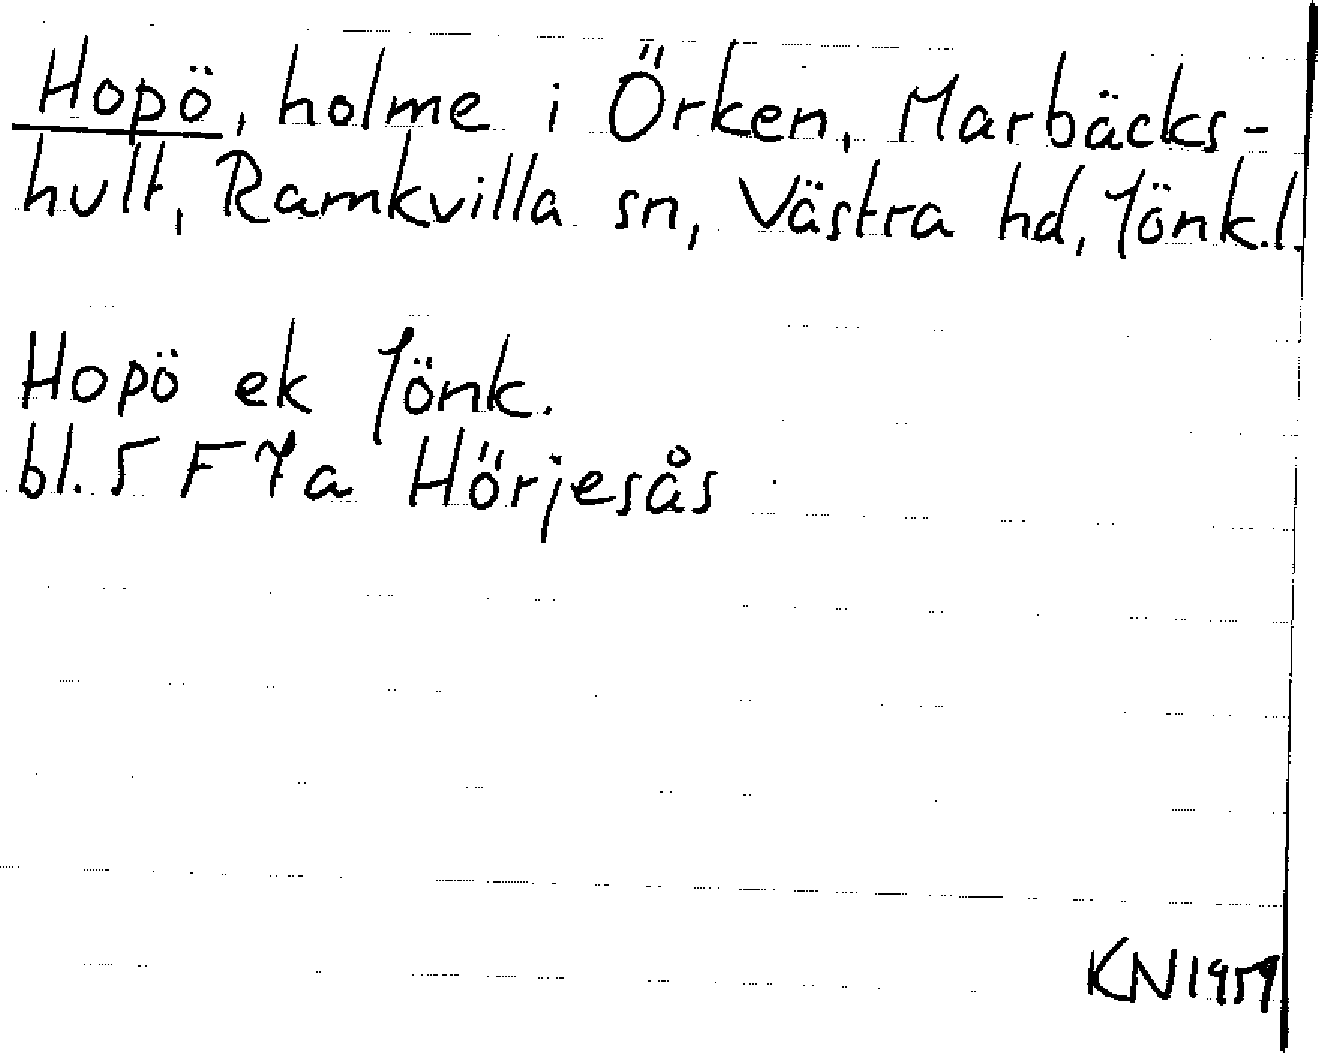 Hopö, holme i Örken, Marbäcks-
hult, Ramkvilla sn, Västra hd, Jönk.l.
Hopö ek Jönk.
bl. 5 F 7a Hörjesås
KN 1957